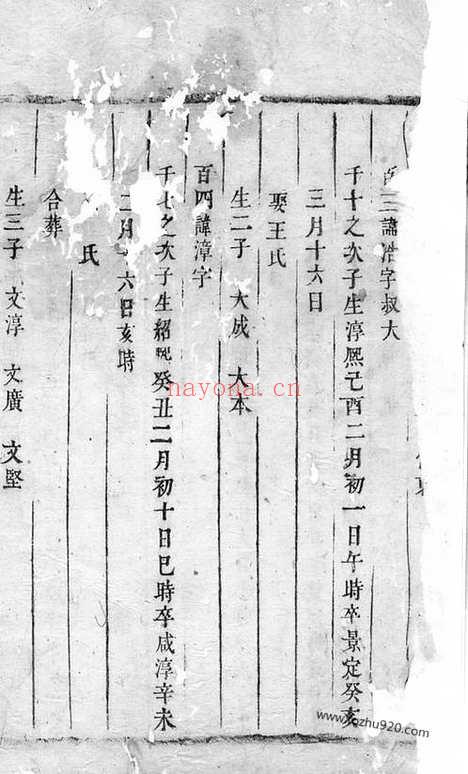 百三諱浩字叔大
千十之次子生淳熙己酉二月初一日午時卒景定癸亥
三月十六日
娶王氏
生二子 大成 大本
百四諱漳字
千七之次子生紹熙癸丑二月初十日巳時卒咸淳辛未
二月十六日亥時
氏
合葬
生三子 文淳 文廣 文堅
nayona.cn
zhu920.com